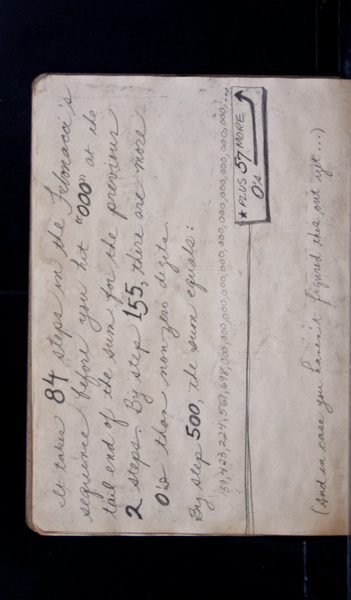 It takes 84 steps in the Fibonacci's
sequence before you hit "000" at the
tail end of the sum for the previous
2 steps. By step 155, there are more
0's than non zero digits.
By step 500, the sum equals:
39,923,224,561,698,000,000,000,000,000,000,000,000...
★ PLUS 57 MORE
0's
(and in case you haven't figured this out yet...)